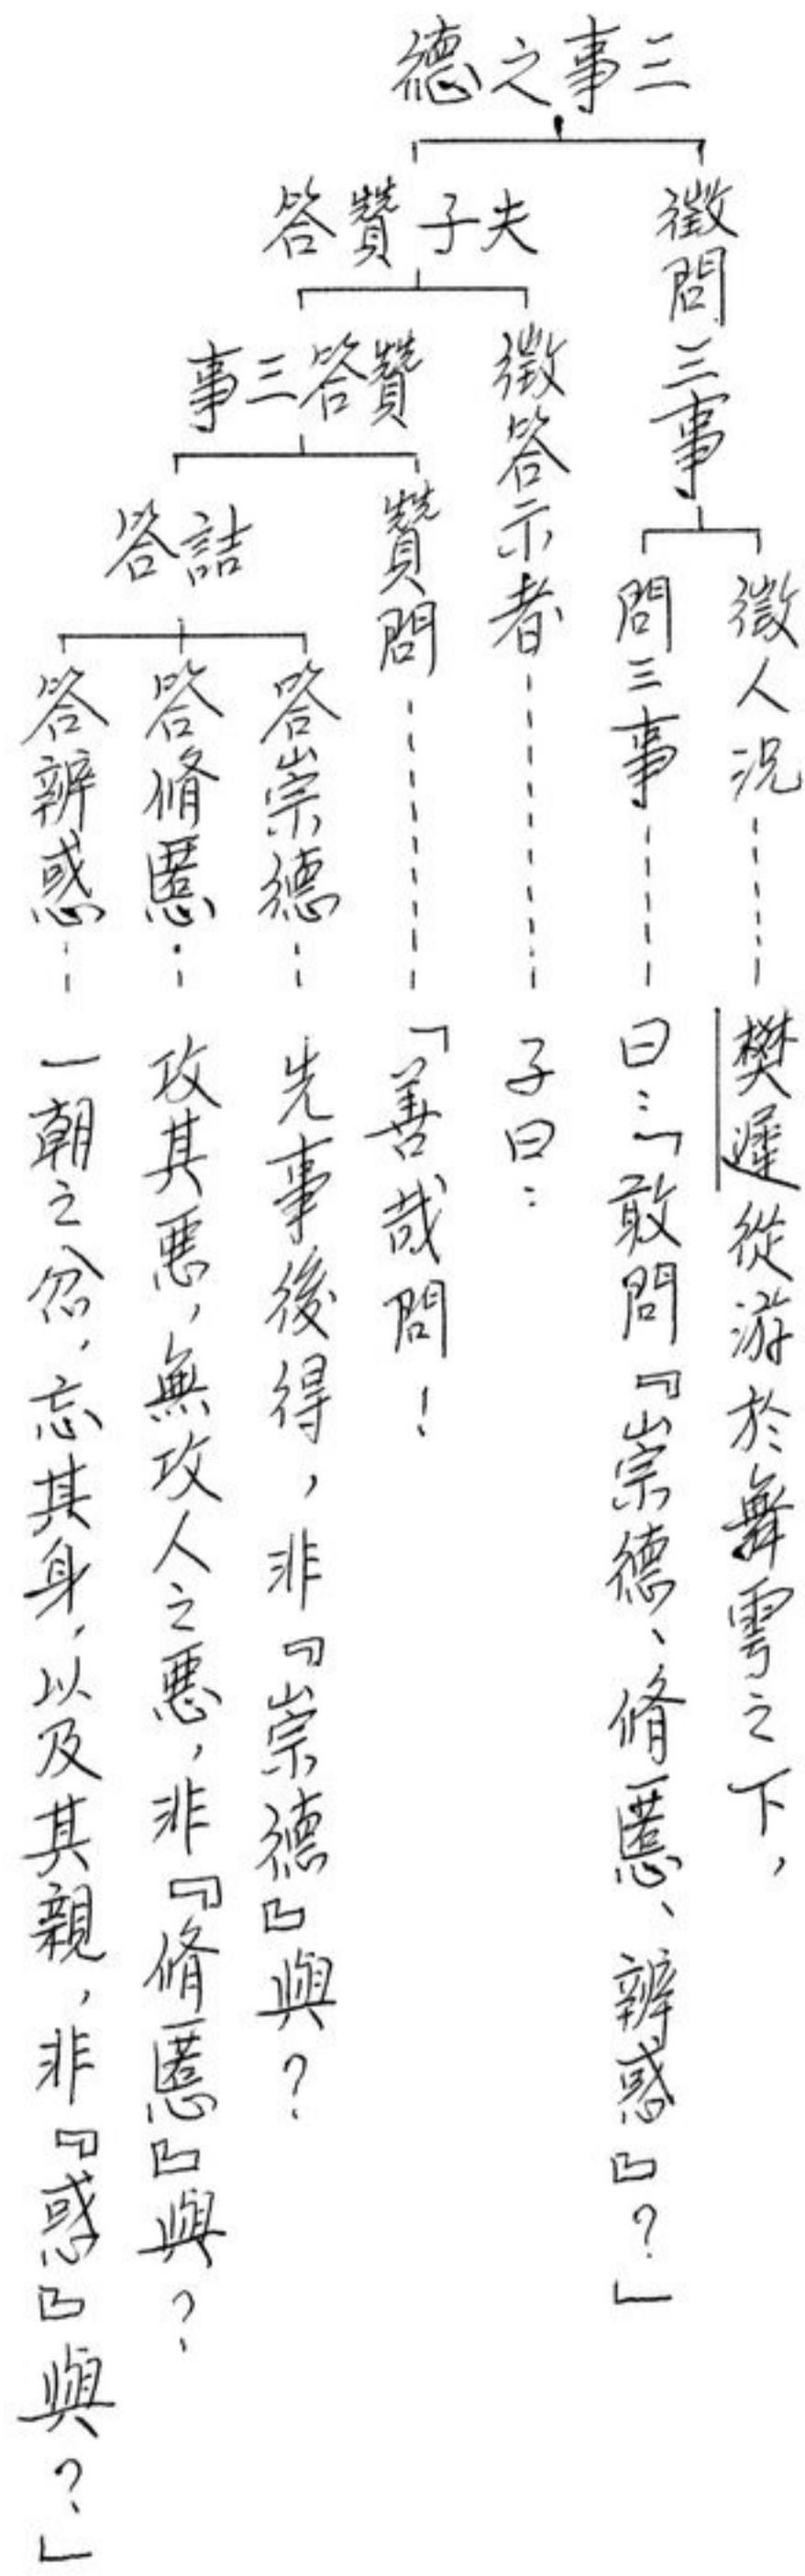 三事之德
徵問三事
徵人況
樊遲從游於舞雩之下，
問三事
曰：「敢問『崇德、脩慝、辨惑』？」
夫子贊答
徵答示者
子曰：
贊答三事
贊問
「善哉問！
詰答
答崇德
先事後得，非『崇德』與？
答脩慝
攻其惡，無攻人之惡，非『脩慝』與？
答辨惑
一朝之忿，忘其身，以及其親，非『惑』與？」